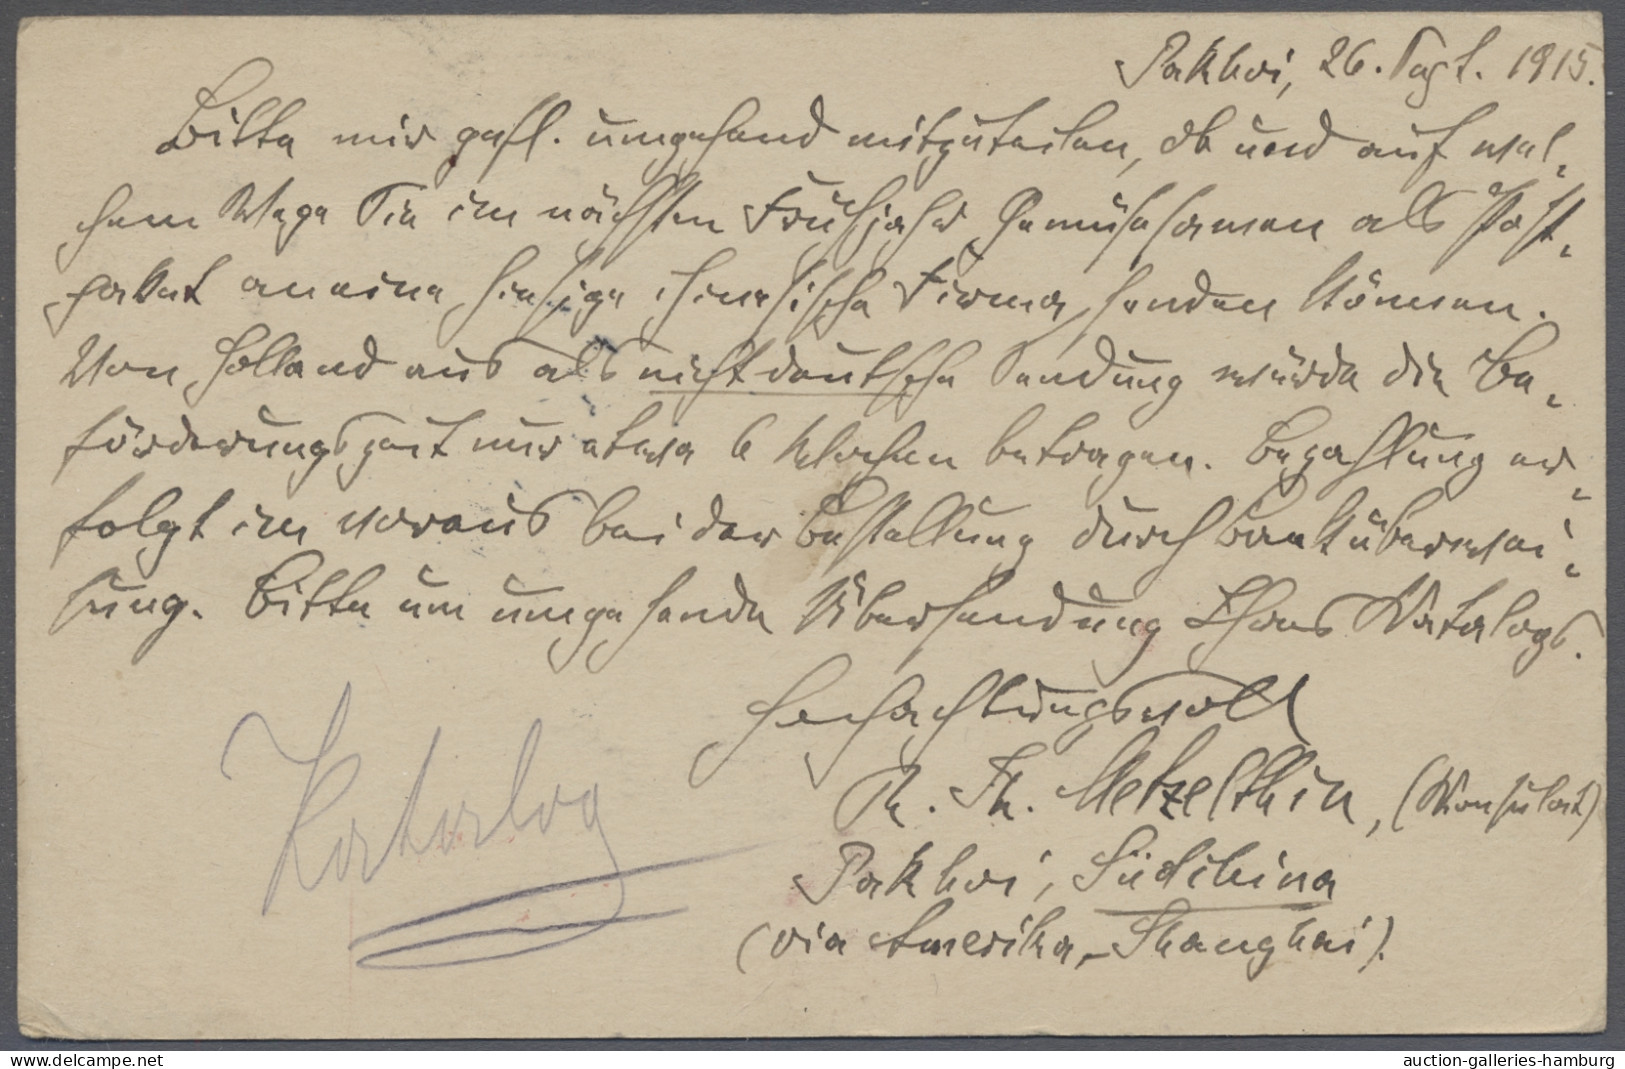 Pakhoi, 26. Sept. 1915.
Bitte mir gefl. umgehend mitzuteilen, ob und auf wel-
chem Wege Sie im nächsten Frühjahr Gemüsesamen als Post-
paket an eine hiesige chinesische Firma senden können.
Von Holland aus als nicht deutsche Sendung würde die Be-
förderungszeit nur etwa 6 Wochen betragen. Bezahlung er-
folgt im voraus bei der Bestellung durch Banküberwei-
sung. Bitte um umgehende Übersendung Ihres Katalogs.
Hochachtungsvoll
R. Th. Metzelthin, (Konsulat)
Pakhoi, Südchina
(via Amerika-Shanghai).
Katalog
www.delcampe.net
auction-galleries-hamburg